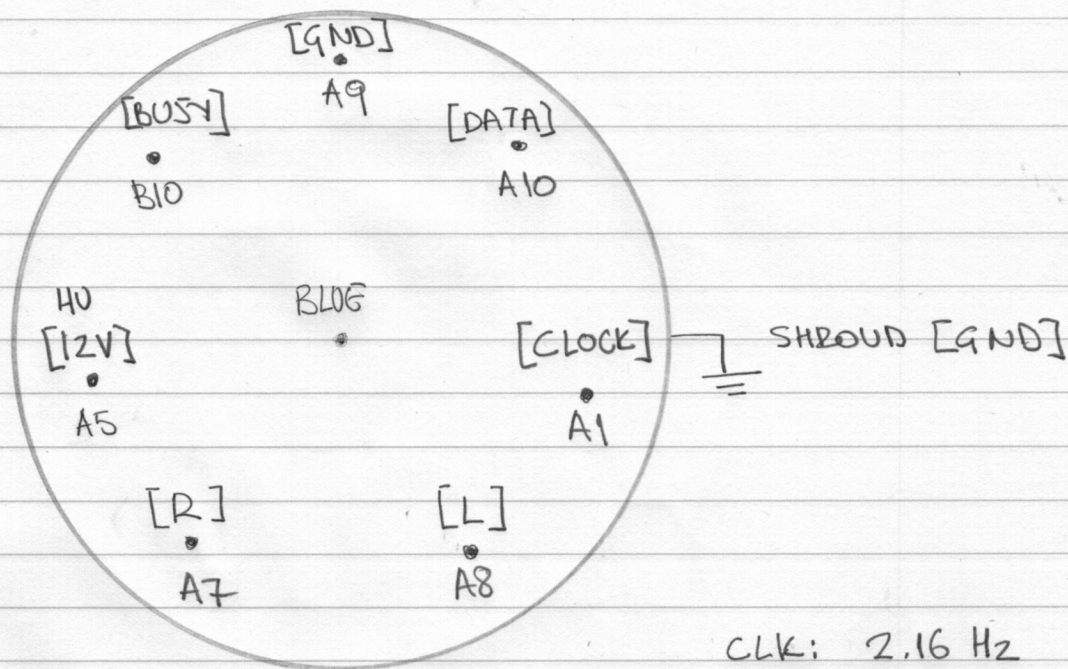 [GND]
A9
[BUSY]
B10
[DATA]
A10
4V
[12V]
A5
BLUE
[CLOCK]
A1
SHROUD [GND]
[R]
A7
[L]
A8
CLK: 2.16 Hz